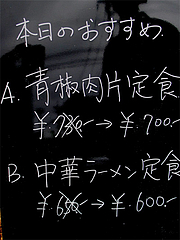 本日のおすすめ.
A. 青椒肉片定食
¥730-→¥.700-
B. 中華ラーメン定食
¥.650-→¥.600-